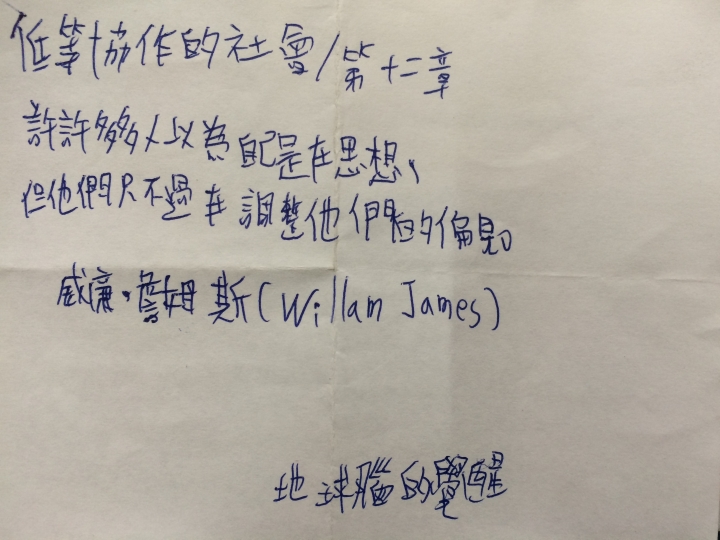 低等協作的社會/第十二章
許許多多人以為自己是在思想、
但他們只不過在調整他們的偏見。
威廉·詹姆斯(Willam James)
地球腦的覺醒